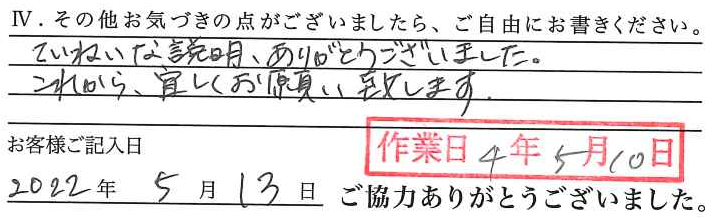 Ⅳ．その他お気づきの点がございましたら、ご自由にお書きください。
ていねいな説明、ありがとうございました。
これから、宜しくお願い致します.
お客様ご記入日
作業日 4年 5月10日
2022年 5月13日 ご協力ありがとうございました。